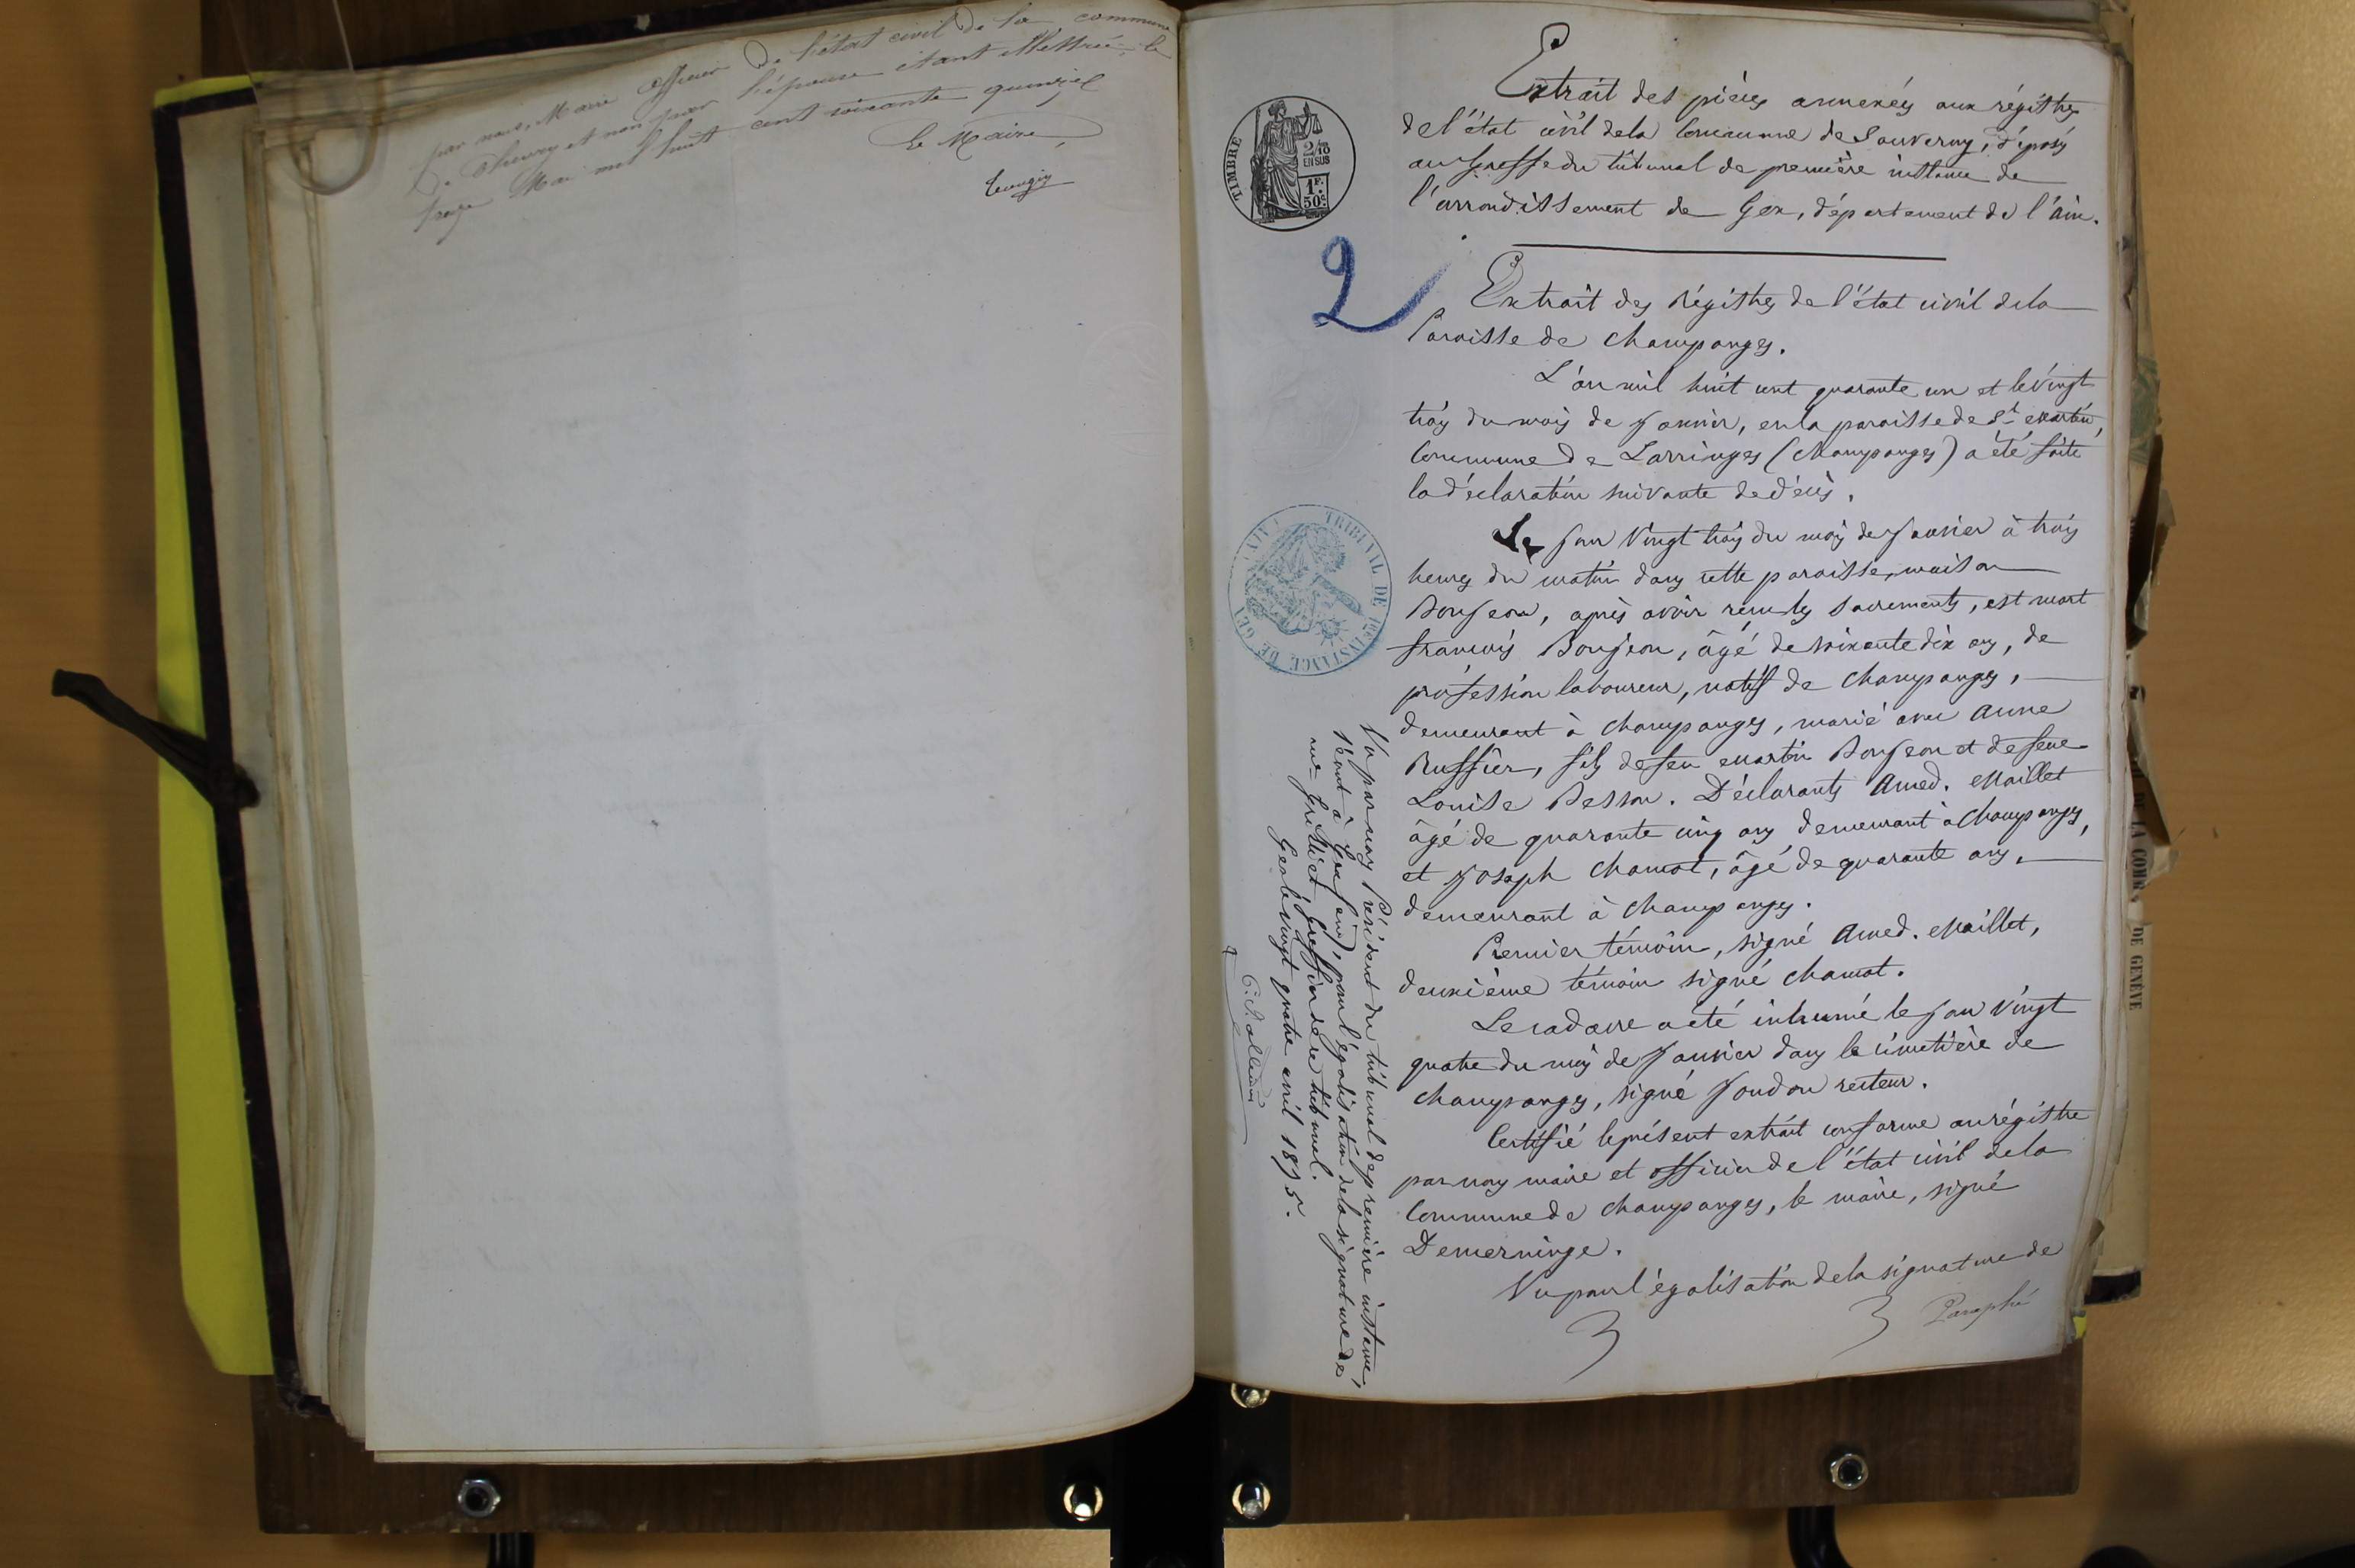 par nous, Maire officier De l'état civil de la commune
De Thoiry et non par l'épouse étant illettrée, le
treize Mai mil huit cent soixante quinze
Le Maire,
TIMBRE
2/10
EN SUS
1F.
50c
2
Extrait des pièces annexées aux régistres
de l'état civil de la Commune de Sauverny, déposés
au Greffe du tribunal de première instance de
l'arrondissement de Gex, département de l'ain.
Extrait des Régistres de l'état civil de la
Paroisse de Champanges.
L'an mil huit cent quarante un et le vingt
trois du mois de janvier, en la paroisse de St Martin,
Commune de Larringes (Champanges) a été faite
la déclaration suivante de décès.
Le jour vingt trois du mois de janvier à trois
heures du matin dans cette paroisse, maison
Bonjean, après avoir reçu les sacrements, est mort
françois Bonjean, âgé de soixante dix ans, de
profession laboureur, natif de Champanges,
demeurant à Champanges, marié avec Anne
Ruffier, fils de feu Martin Bonjean et de feue
Louise Besson. Déclarants Amed. Maillet
âgé de quarante cinq ans demeurant à Champanges,
et Joseph Chamot, âgé de quarante ans,
demeurant à Champanges.
Premier témoin, signé Amed. Maillet,
deuxième témoin signé Chamot.
Le cadavre a été inhumé le jour vingt
quatre du mois de Janvier dans le cimetière de
Champanges, signé Joudon recteur.
Certifié le présent extrait conforme au régistre
par nous maire et officier de l'état civil de la
Commune de Champanges, le maire, signé
Demerninge.
Vu pour légalisation de la signature de
Paraphé
TRIBUNAL DE 1RE INSTANCE DE GEX (AIN)
Vu par nous Président du tribunal de première instance,
séant à Gex (ain), pour légalisation de la signature de
me Grettiet, Greffier de ce tribunal.
Gex le vingt quatre avril 1875.
DE LA COUR DE GENÈVE